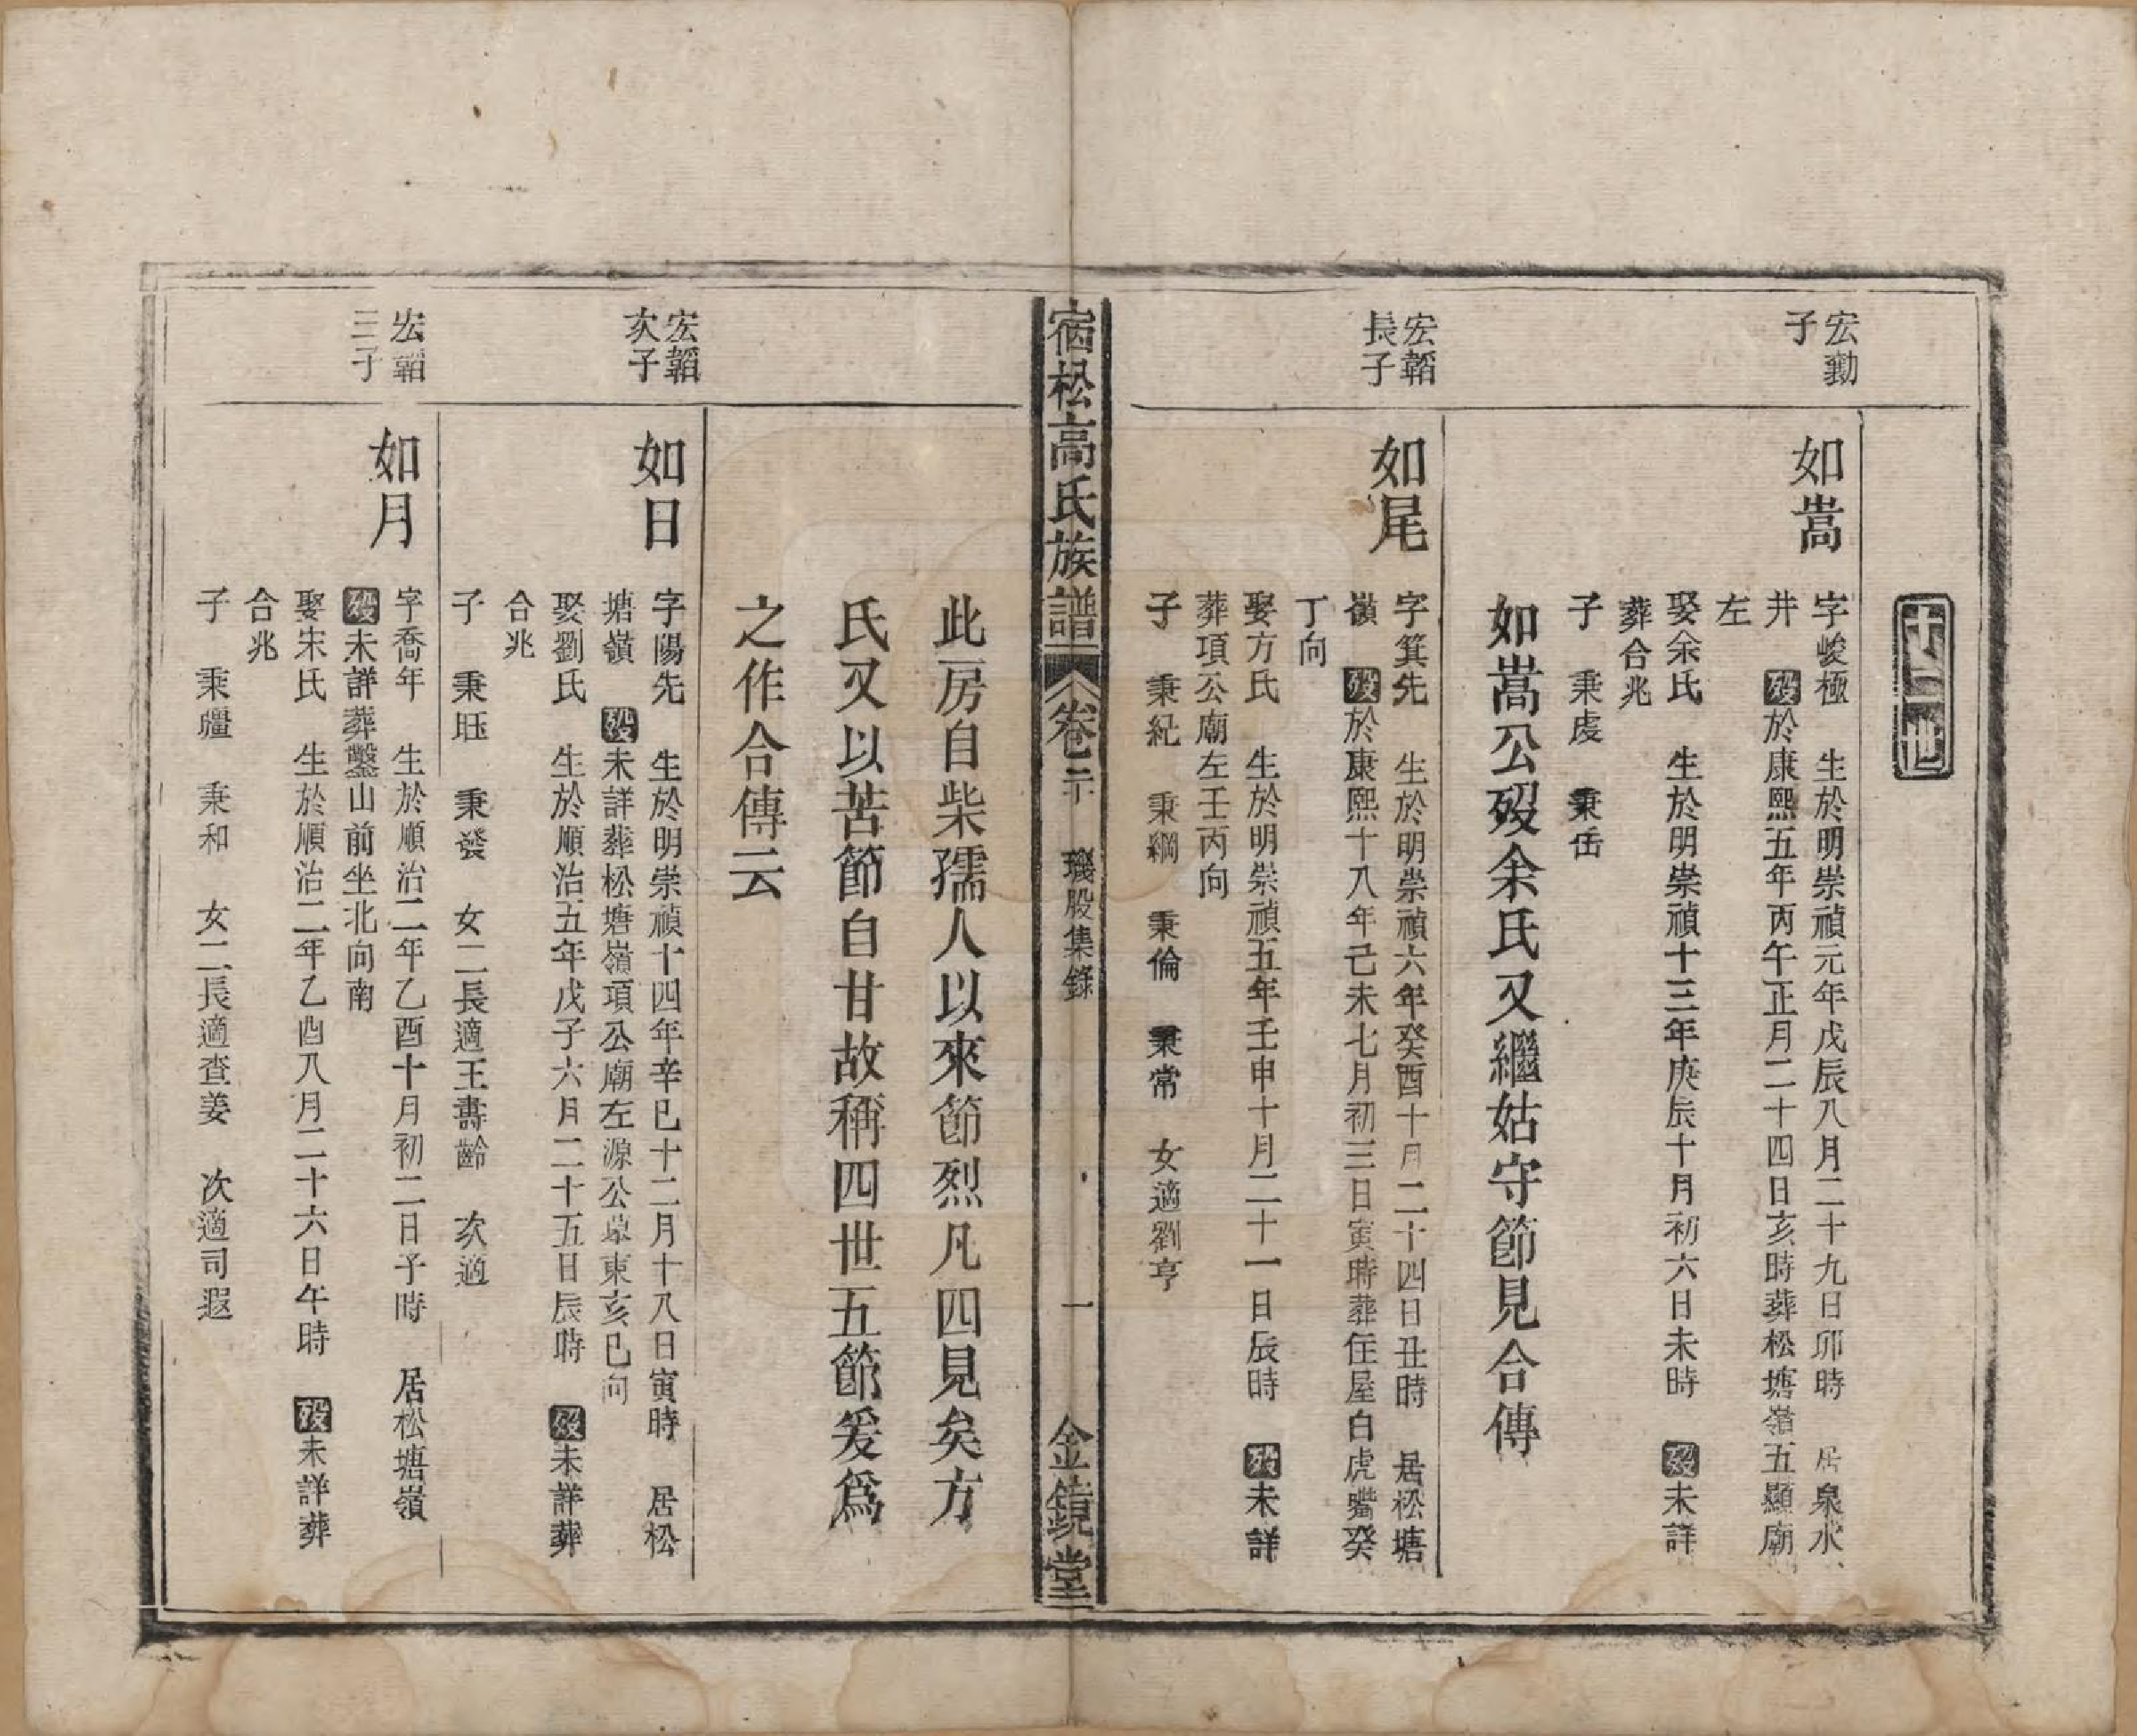 十二世
宏勳
子
如嵩
字峻極　生於明崇禎元年戊辰八月二十九日卯時　居泉水
井　歿於康熙五年丙午正月二十四日亥時葬松塘嶺五顯廟
左
娶余氏　生於明崇禎十三年庚辰十月初六日未時　歿未詳
葬合兆
子　秉虔　秉岳
如嵩公歿余氏又繼姑守節見合傳
宏韜
長子
如尾
字箕先　生於明崇禎六年癸酉十月二十四日丑時　居松塘
嶺　歿於康熙十八年己未七月初三日寅時葬住屋白虎嘴癸
丁向
娶方氏　生於明崇禎五年壬申十月二十一日辰時　歿未詳
葬項公廟左壬丙向
子　秉紀　秉綱　秉倫　秉常　女適劉亨
宿松高氏族譜　卷二十　璣股集錄　一　金鏡堂
此房自柴孺人以來節烈凡四見矣方
氏又以苦節自甘故稱四世五節爰爲
之作合傳云
宏韜
次子
如日
字陽先　生於明崇禎十四年辛巳十二月十八日寅時　居松
塘嶺　歿未詳葬松塘嶺項公廟左源公墓東亥巳向
娶劉氏　生於順治五年戊子六月二十五日辰時　歿未詳葬
合兆
子　秉旺　秉發　女二長適王壽齡　次適
宏韜
三子
如月
字喬年　生於順治二年乙酉十月初二日子時　居松塘嶺
歿未詳葬鑿山前坐北向南
娶宋氏　生於順治二年乙酉八月二十六日午時　歿未詳葬
合兆
子　秉疆　秉和　女二長適查姜　次適司遐